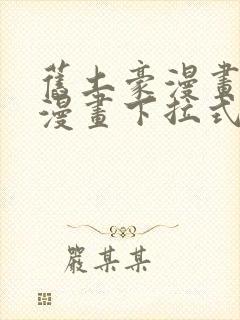 舊土豪漫畫
漫畫下拉式
嚴某某